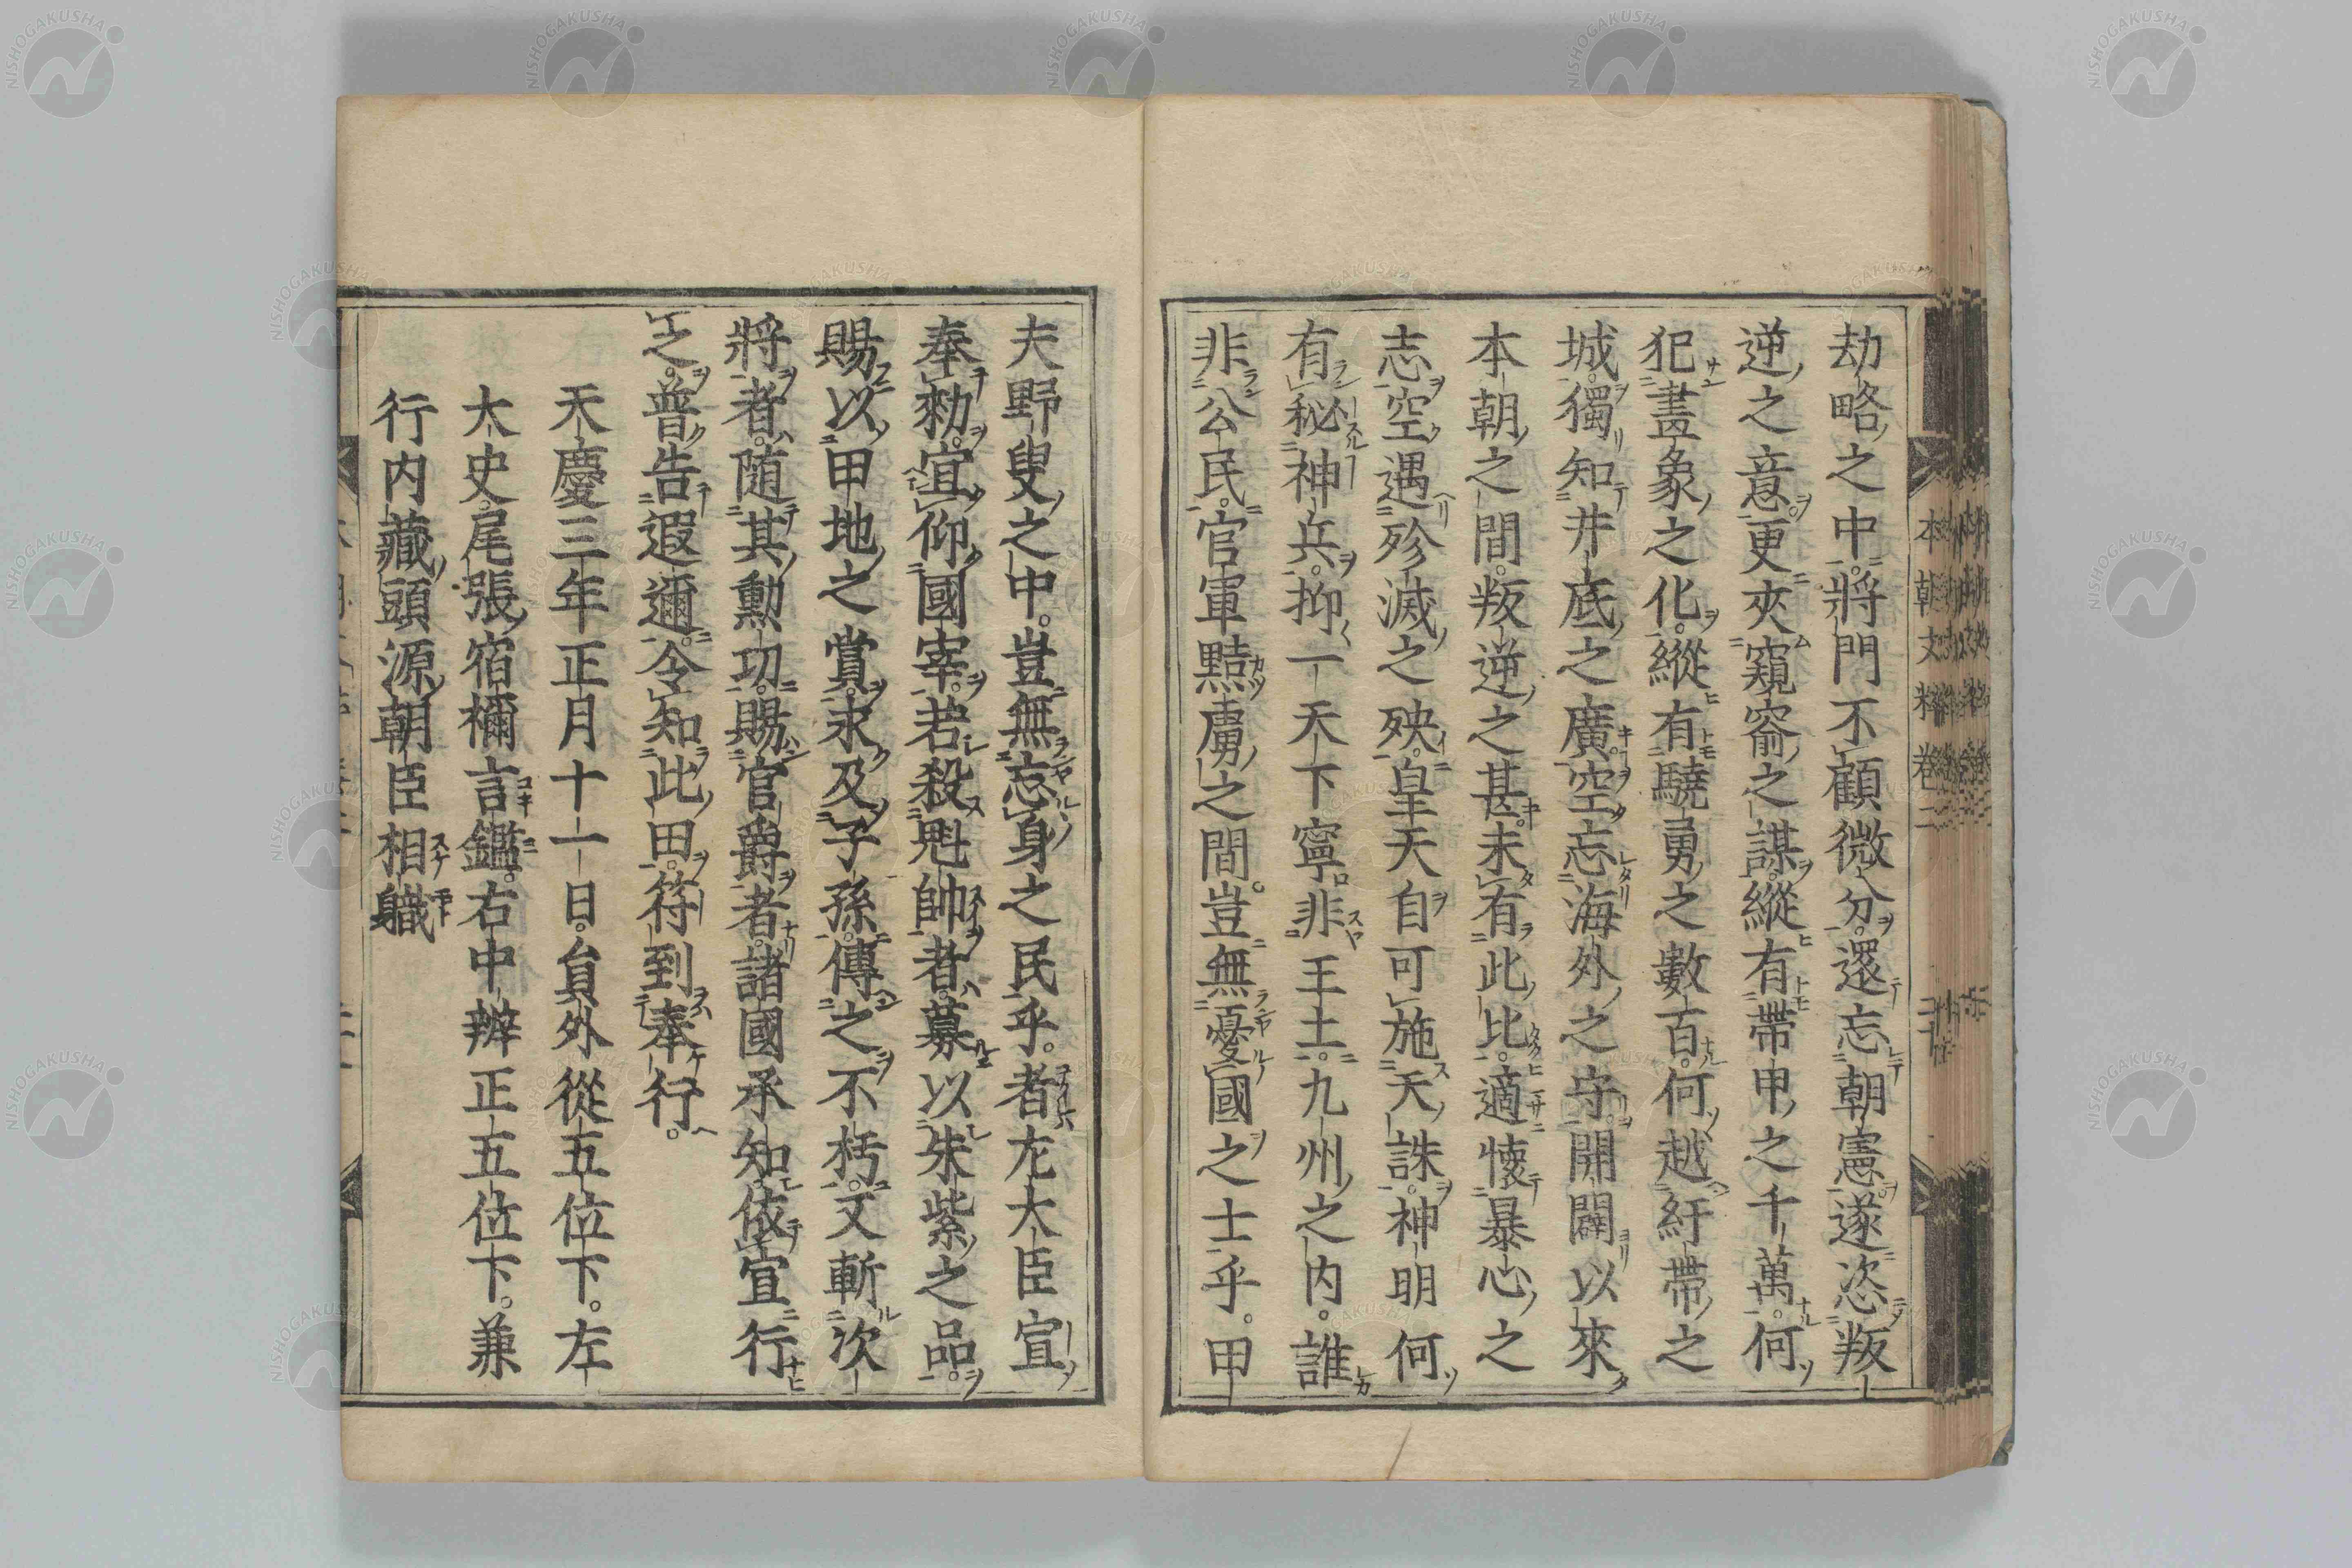 劫略之中。將門不顧微分。還忘朝憲。遂恣叛
逆之意。更夾窺窬之謀。縱有帶甲之千萬。何
犯畫象之化。縱有驍勇之數百。何越紆帶之
城。獨知井底之廣。空忘海外之守。開闢以來
本朝之間。叛逆之甚。未有此比。適懷暴心之
志。空遇殄滅之殃。皇天自可施天誅。神明何
有秘神兵。抑一天下寧非王土。九州之内。誰
非公民。官軍黠虜之間。豈無憂國之士乎。甲
夫野叟之中。豈無忘身之民乎。者左大臣宣
奉勑。宜仰國宰。若殺魁帥者。募以朱紫之品。
賜以甲地之賞。永及子孫。傳之不朽。又斬次
將者。隨其勳功。賜官爵者。諸國承知。依宣行
之。普告遐邇。令知此由。符到奉行。
天慶三年正月十一日。員外從五位下。左
大史尾張宿祢言鑑。右中辨正五位下。兼
行内藏頭源朝臣相職
本朝文粹卷二
NISHOGAKUSHA